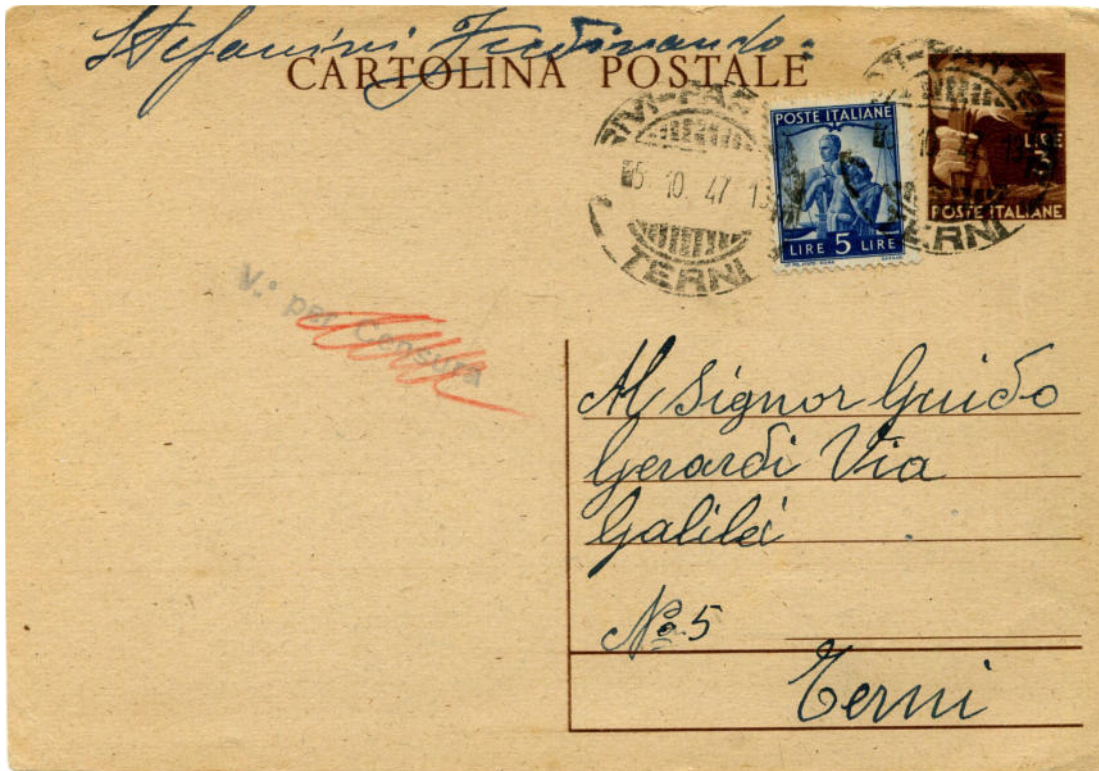 Stefanini Ferdinando
CARTOLINA POSTALE
POSTE ITALIANE
LIRE 5 LIRE
LIRE
3
POSTE ITALIANE
5. 10. 47
TERNI
10. 47
TERNI
V.° per Censura
Al Signor Guido
Gerardi Via
Galilei
N° 5
Terni